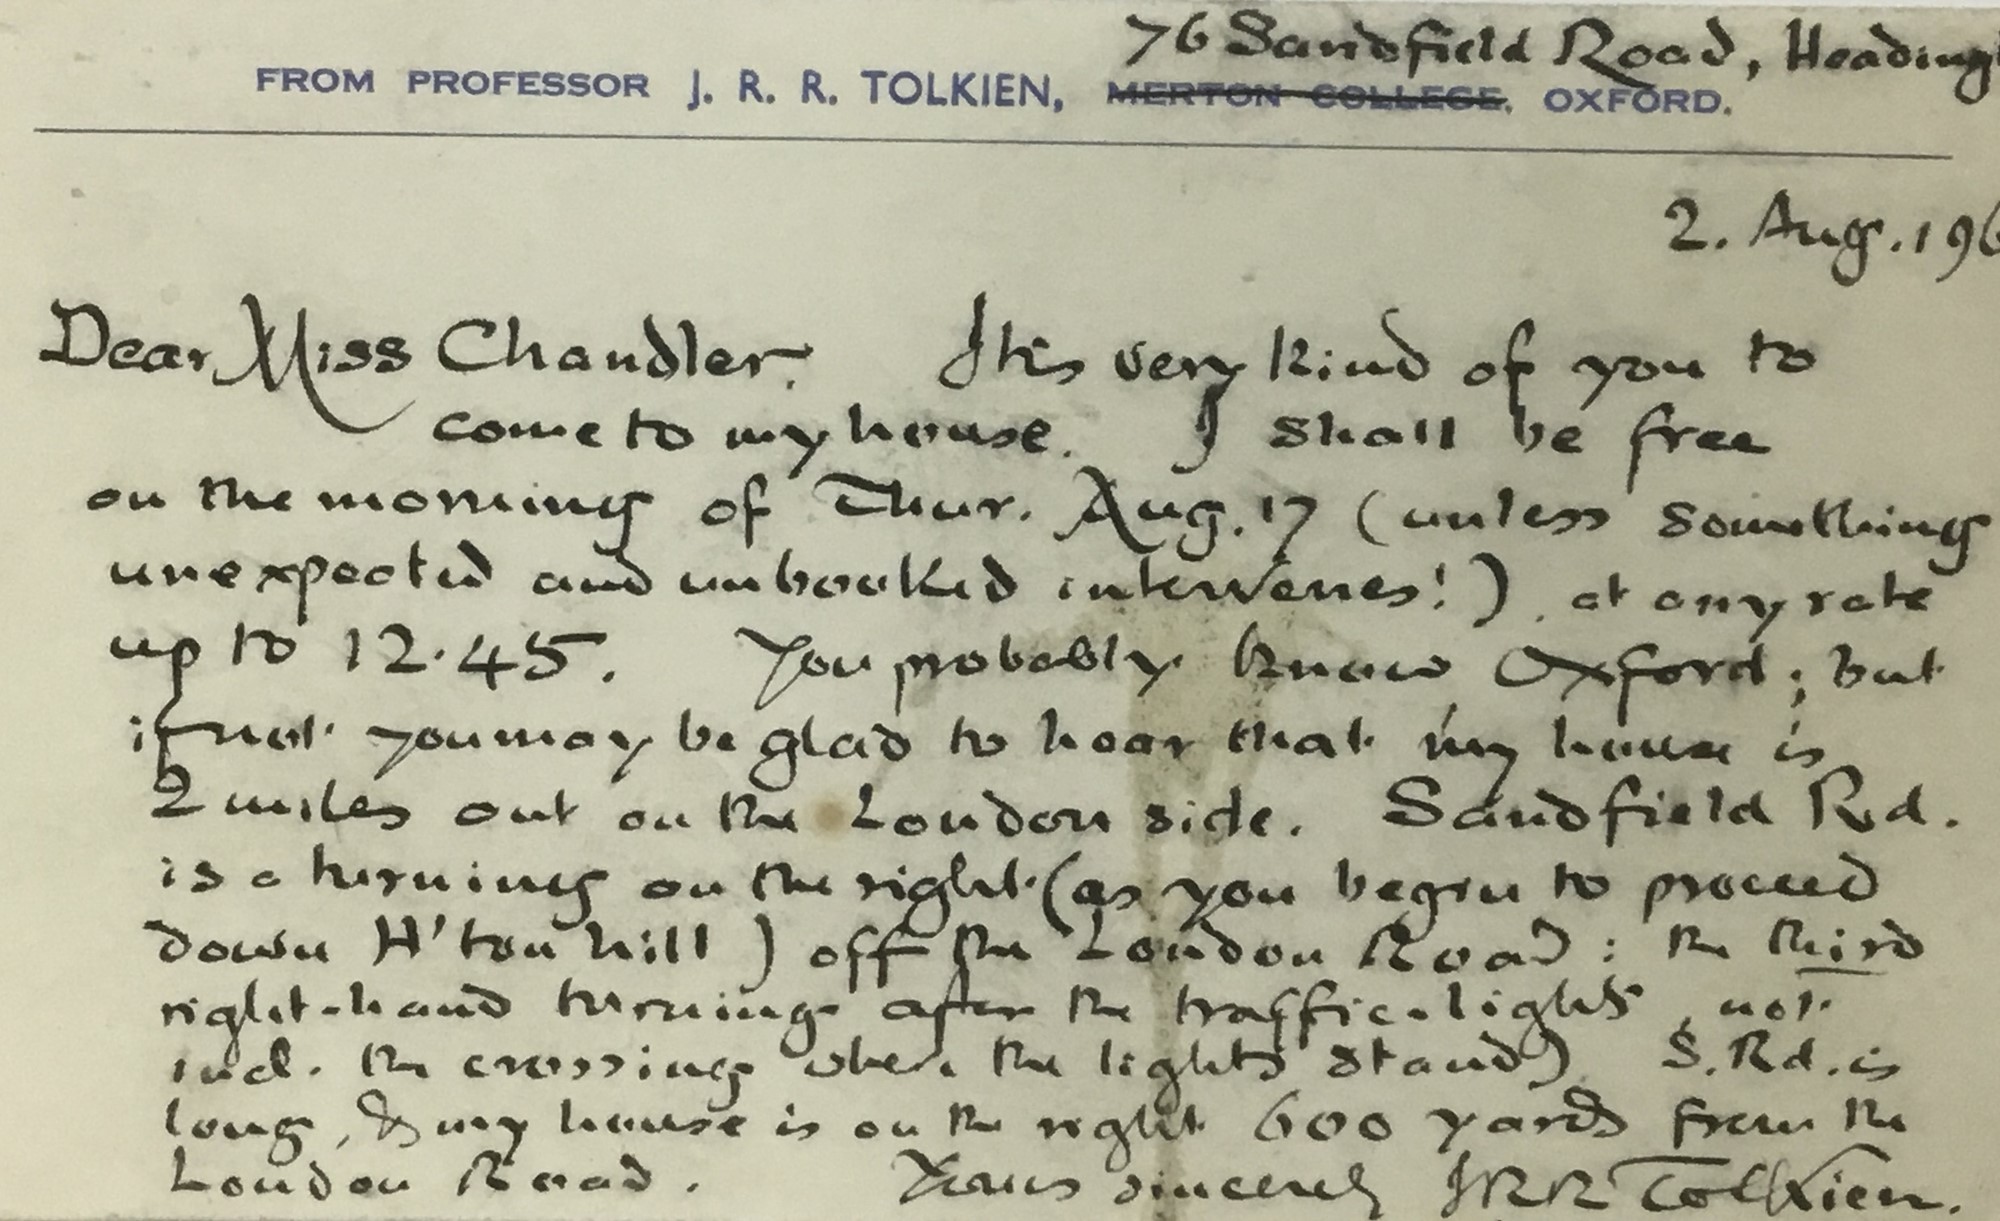 76 Sandfield Road, Heading
FROM PROFESSOR J. R. R. TOLKIEN, MERTON COLLEGE, OXFORD.
2. Aug. 196
Dear Miss Chandler. It is very kind of you to
come to my house. I shall be free
on the morning of Thur. Aug. 17 (unless something
unexpected and unbooked intervenes!), at any rate
up to 12.45. You probably know Oxford; but
if not you may be glad to hear that my house is
2 miles out on the London side. Sandfield Rd.
is a turning on the right (as you begin to proceed
down H'ton hill) off the London Road: the third
right-hand turning after the traffic-lights, not
incl. the crossing where the lights stand). S. Rd. is
long, & my house is on the right 600 yards from the
London Road. Yours sincerely JRR Tolkien.